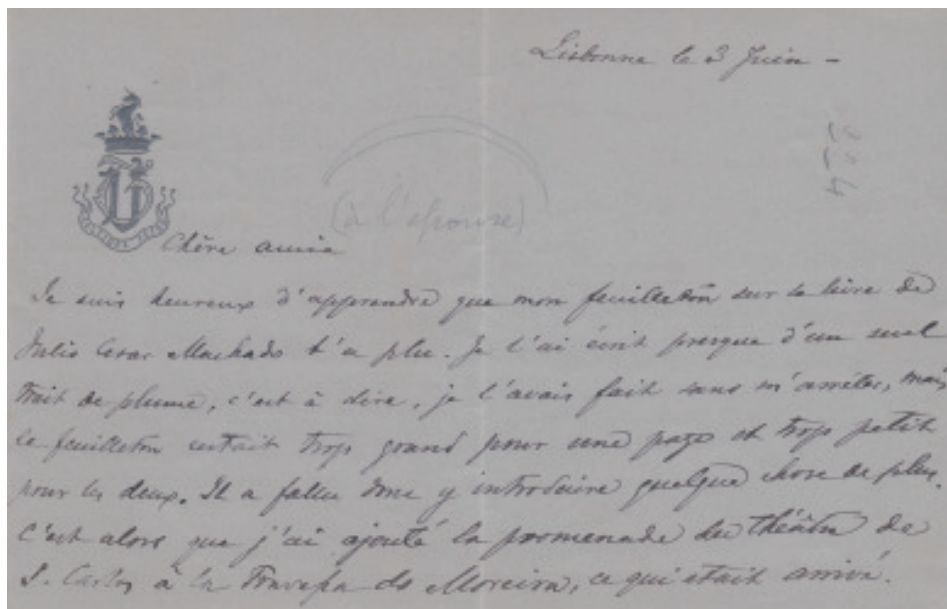 Lisbonne le 3 Juin -
(à l'épouse)
Chère amie
Je suis heureux d'apprendre que mon feuilleton sur le livre de
Julio Cesar Machado t'a plu. Je l'ai écrit presque d'un seul
trait de plume, c'est à dire, je l'avais fait sans m'arrêter, mais
le feuilleton était trop grand pour une page et trop petit
pour les deux. Il a fallu donc y introduire quelque chose de plus.
C'est alors que j'ai ajouté la promenade du théâtre de
S. Carlos à la Travessa do Moreira, ce qui était arrivé.